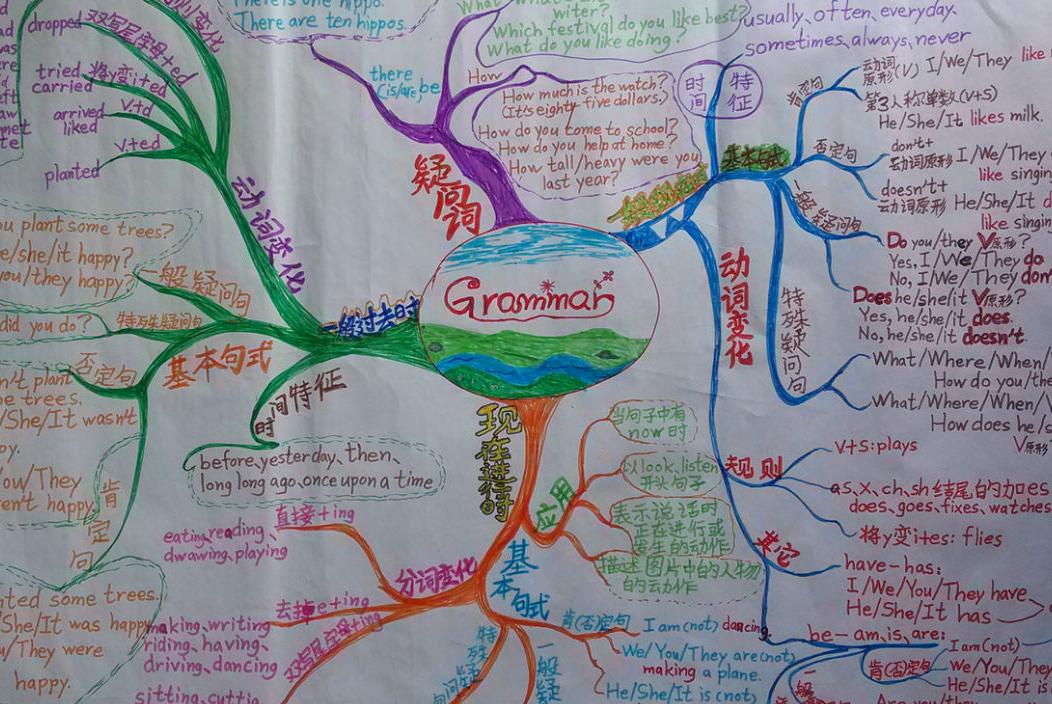 Grammar
There is one hippo.
There are ten hippos.
there
(is/are) be
疑问词
Which festival do you like best?
What do you like doing?
How
How much is the watch?
(It's eighty five dollars.)
How do you come to school?
How do you help at home?
How tall/heavy were you
last year?
usually、often、everyday.
sometimes、always、never
时间
特征
基本句式
肯定句
动词
原形(V) I/We/They like
第3人称单数(V+S)
He/She/It likes milk.
否定句
don't+
动词原形 I/We/They
like singin
doesn't+
动词原形 He/She/It d
like singin
一般疑问句
Do you/they V原形?
Yes, I/We/They do
No, I/We/They don'
Does he/she/it V原形?
Yes, he/she/it does.
No, he/she/it doesn't.
特殊疑问句
What/Where/When/
How do you/the
What/Where/When/
How does he/s
V原形
动词变化
规则
V+S:plays
as、x、ch、sh结尾的加es
does、goes、fixes、watches
将y变i+es: flies
其它
have-has:
I/We/You/They have
He/She/It has
be-am、is、are:
肯(否)定句
I am(not)
We/You/They
He/She/It is
Are you/they
一般过去时
动词变化
dropped
双写尾字母+ed
tried
carried
将y变i+ed
arrived
liked
V+d
V+ed
planted
基本句式
一般疑问句
ou plant some trees?
e/she/it happy?
you/they happy?
特殊疑问句
did you do?
否定句
n't plant
e trees.
/She/It wasn't
py.
You/They
ren't happy.
肯定句
nted some trees.
/She/It was happy
u/They were
happy.
时间特征
before、yesterday、then、
long long ago、once upon a time
现在进行时
应用
当句子中有
now时
以look、listen
开头句子
表示说话时
正在进行或
发生的动作
描述图片中的人物
的动作
分词变化
直接+ing
eating、reading、
dwawing、playing
去掉e+ing
making、writing
riding、having、
driving、dancing
双写尾字母+ing
基本句式
肯(否)定句
I am(not) dancing.
We/You/They are(not)
making a plane.
He/She/It is(not)
一般疑